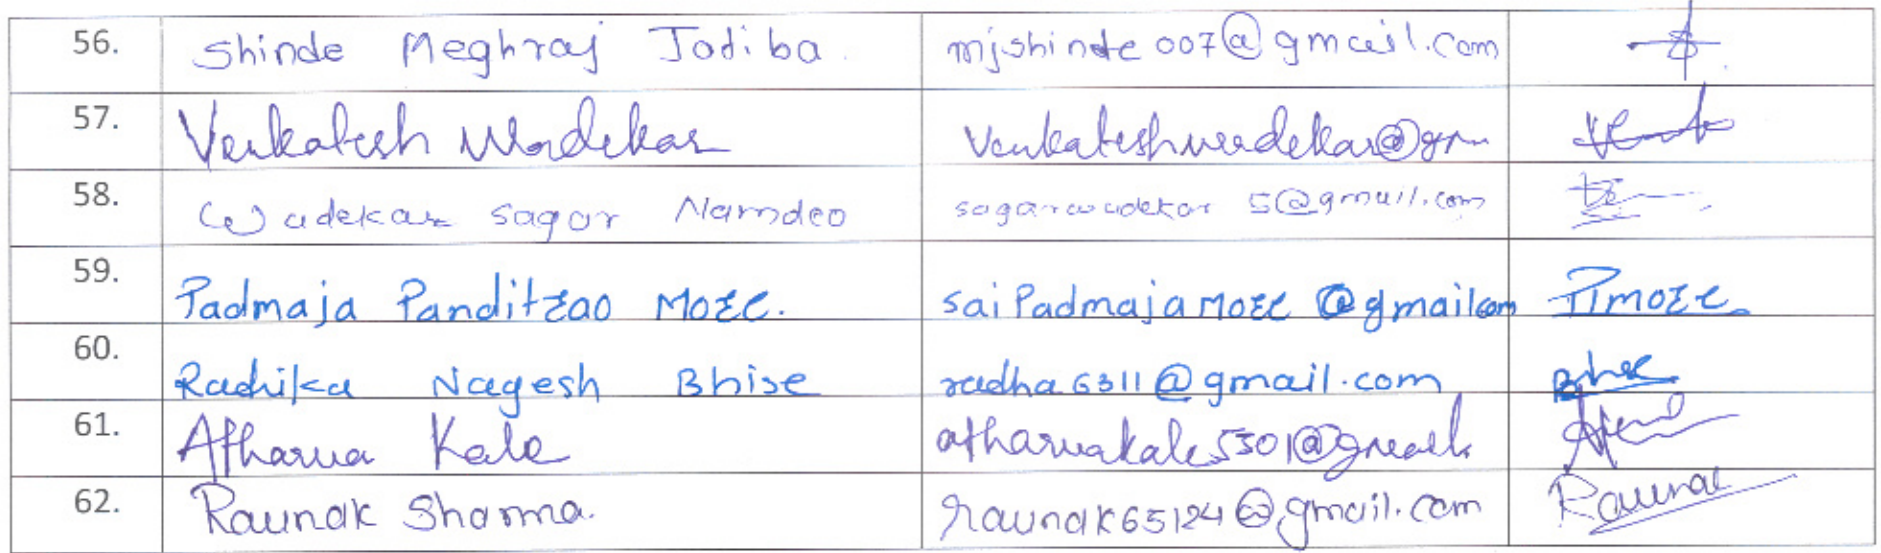 56. Shinde Meghraj Jotiba. mjshinde007@gmail.com
57. Venkatesh Wadekar venkateshwadekar@gm
58. Wadekar sagar Namdeo sagarwadekar5@gmail.com
59. Padmaja Panditrao More. saiPadmajaMore@gmailcom PMore
60. Radhika Nagesh Bhise radha6311@gmail.com Bhise
61. Atharva Kale atharvakale5301@gmail.
62. Raunak Sharma. raunak65124@gmail.com Raunak